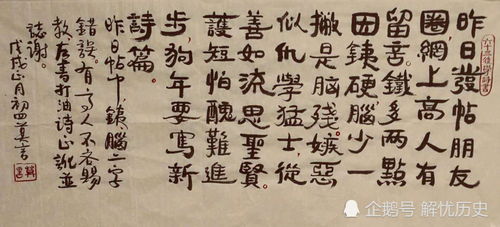 昨日發帖朋友
圈網上高人有
留言鐵多兩點
因銕硬腦少一
撇是脑残嫉惡
似仇學猛士從
善如流思聖賢
護短怕醜難進
步狗年要寫新
詩篇
昨日帖中銕腦二字
錯誤有高人不吝賜
教左書打油诗正訛並
誌謝
戊戌正月初四莫言
企鹅号 解忧历史